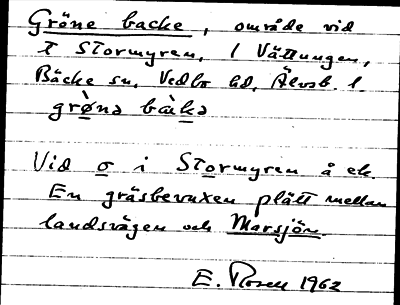 Gröne backe, område vid
t Stormyren, l Vättungen,
Bäcke sn, Vedbo hd, Älvsb. l.
grø̀nə bàkə
Vid o i Stormyren å ek.
En gräsbevuxen plätt mellan
landsvägen och Marsjön.
E. Rosell 1962